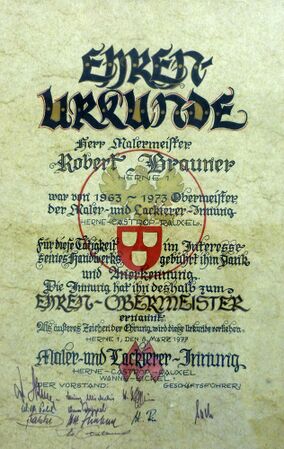 EHREN-
URKUNDE
Herr Malermeister
Robert Brauner
HERNE 1
war von 1963 - 1973 Obermeister
der Maler- und Lackierer-Innung
HERNE-CASTROP-RAUXEL.
Für diese Tätigkeit im Interesse
seines Handwerks gebührt ihm Dank
und Anerkennung.
Die Innung hat ihn deshalb zum
EHREN-OBERMEISTER
ernannt.
Als äußeres Zeichen der Ehrung wird diese Urkunde verliehen.
HERNE 1, DEN 8. MÄRZ 1977
Maler- und Lackierer-Innung
HERNE-CASTROP-RAUXEL
WANNE-EICKEL
DER VORSTAND: GESCHÄFTSFÜHRER: